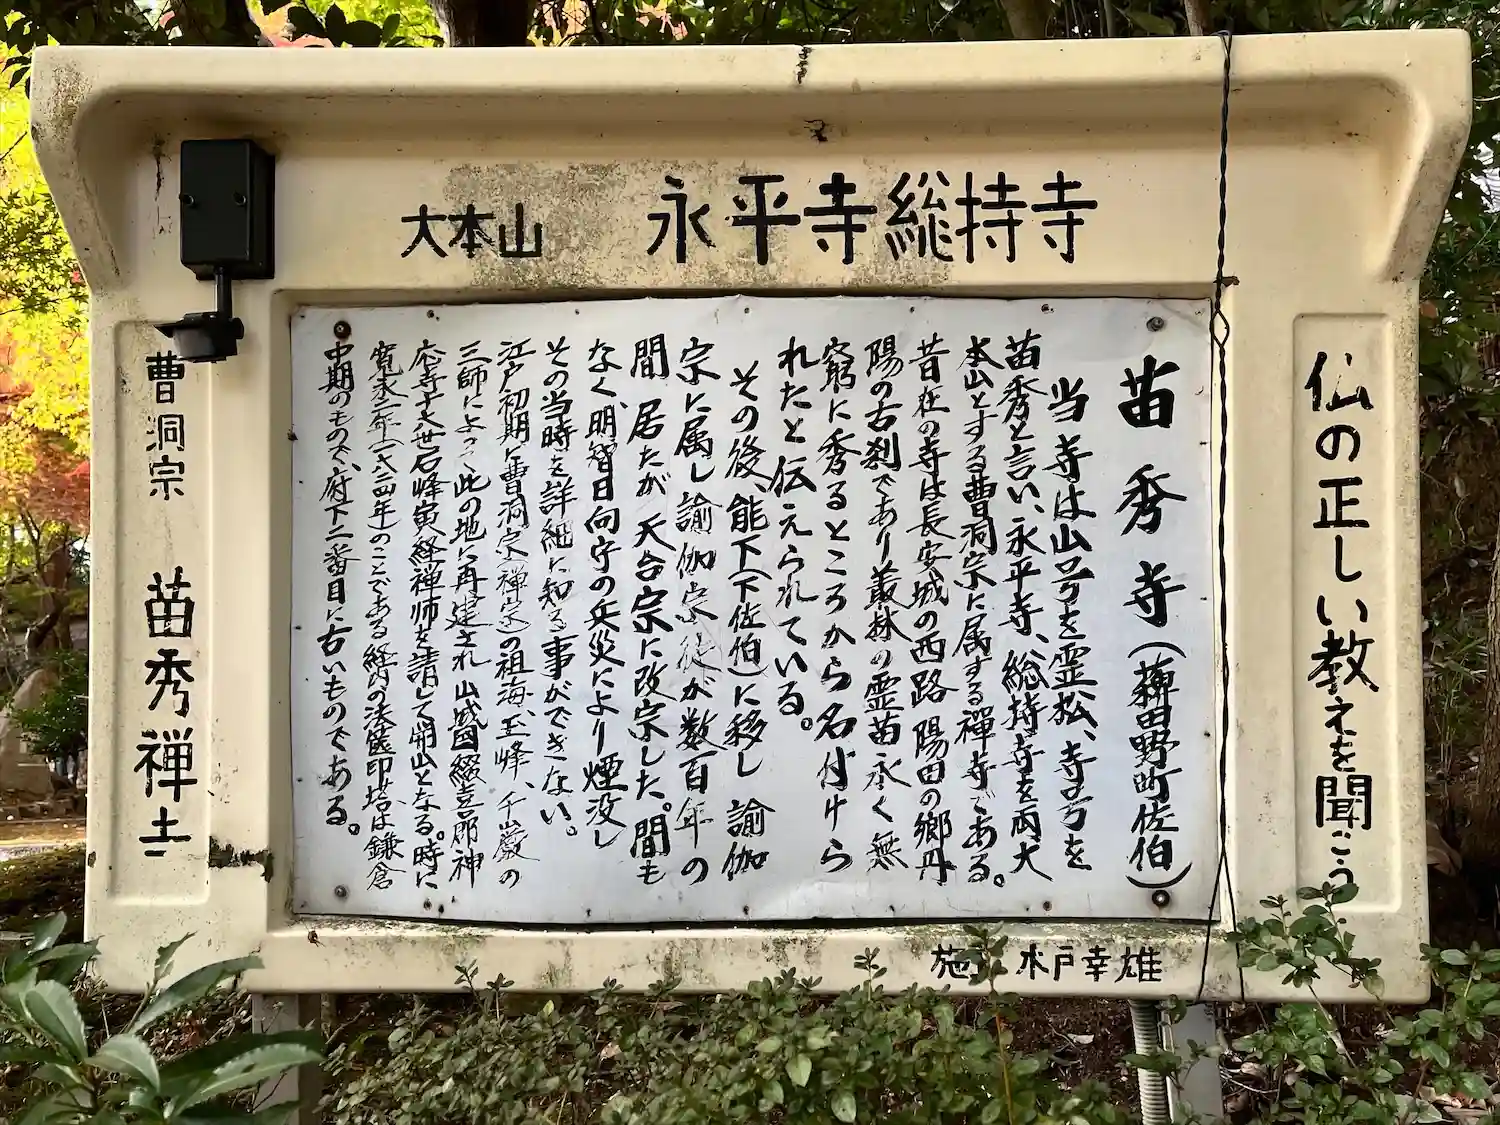 大本山 永平寺総持寺
仏の正しい教えを聞こう
苗秀寺(薭田野町佐伯)
当寺は山号を霊松、寺号を
苗秀と言い、永平寺、総持寺を両大
本山とする曹洞宗に属する禅寺である。
昔在の寺は長安城の西路陽田の郷丹
陽の古刹であり叢林の霊苗永く無
窮に秀るところから名付けら
れたと伝えられている。
その後、能下(下佐伯)に移し諭伽
宗に属し諭伽宗徒が数百年の
間居たが天台宗に改宗した。間も
なく、明智日向守の兵災により煙没し
その当時を詳細に知る事ができない。
江戸初期に曹洞宗(禅宗)の祖海、玉峰、千巌の
三師によって此の地に再建され山城国綴喜郡神
応寺十八世石峰寅経禅师を請して開山となる。時に
寛永元年(一六二四年)のことである。経内の法篋印塔は鎌倉
中期のもので、府下二番目に古いものである。
曹洞宗 苗秀禅寺
施主 木戸幸雄